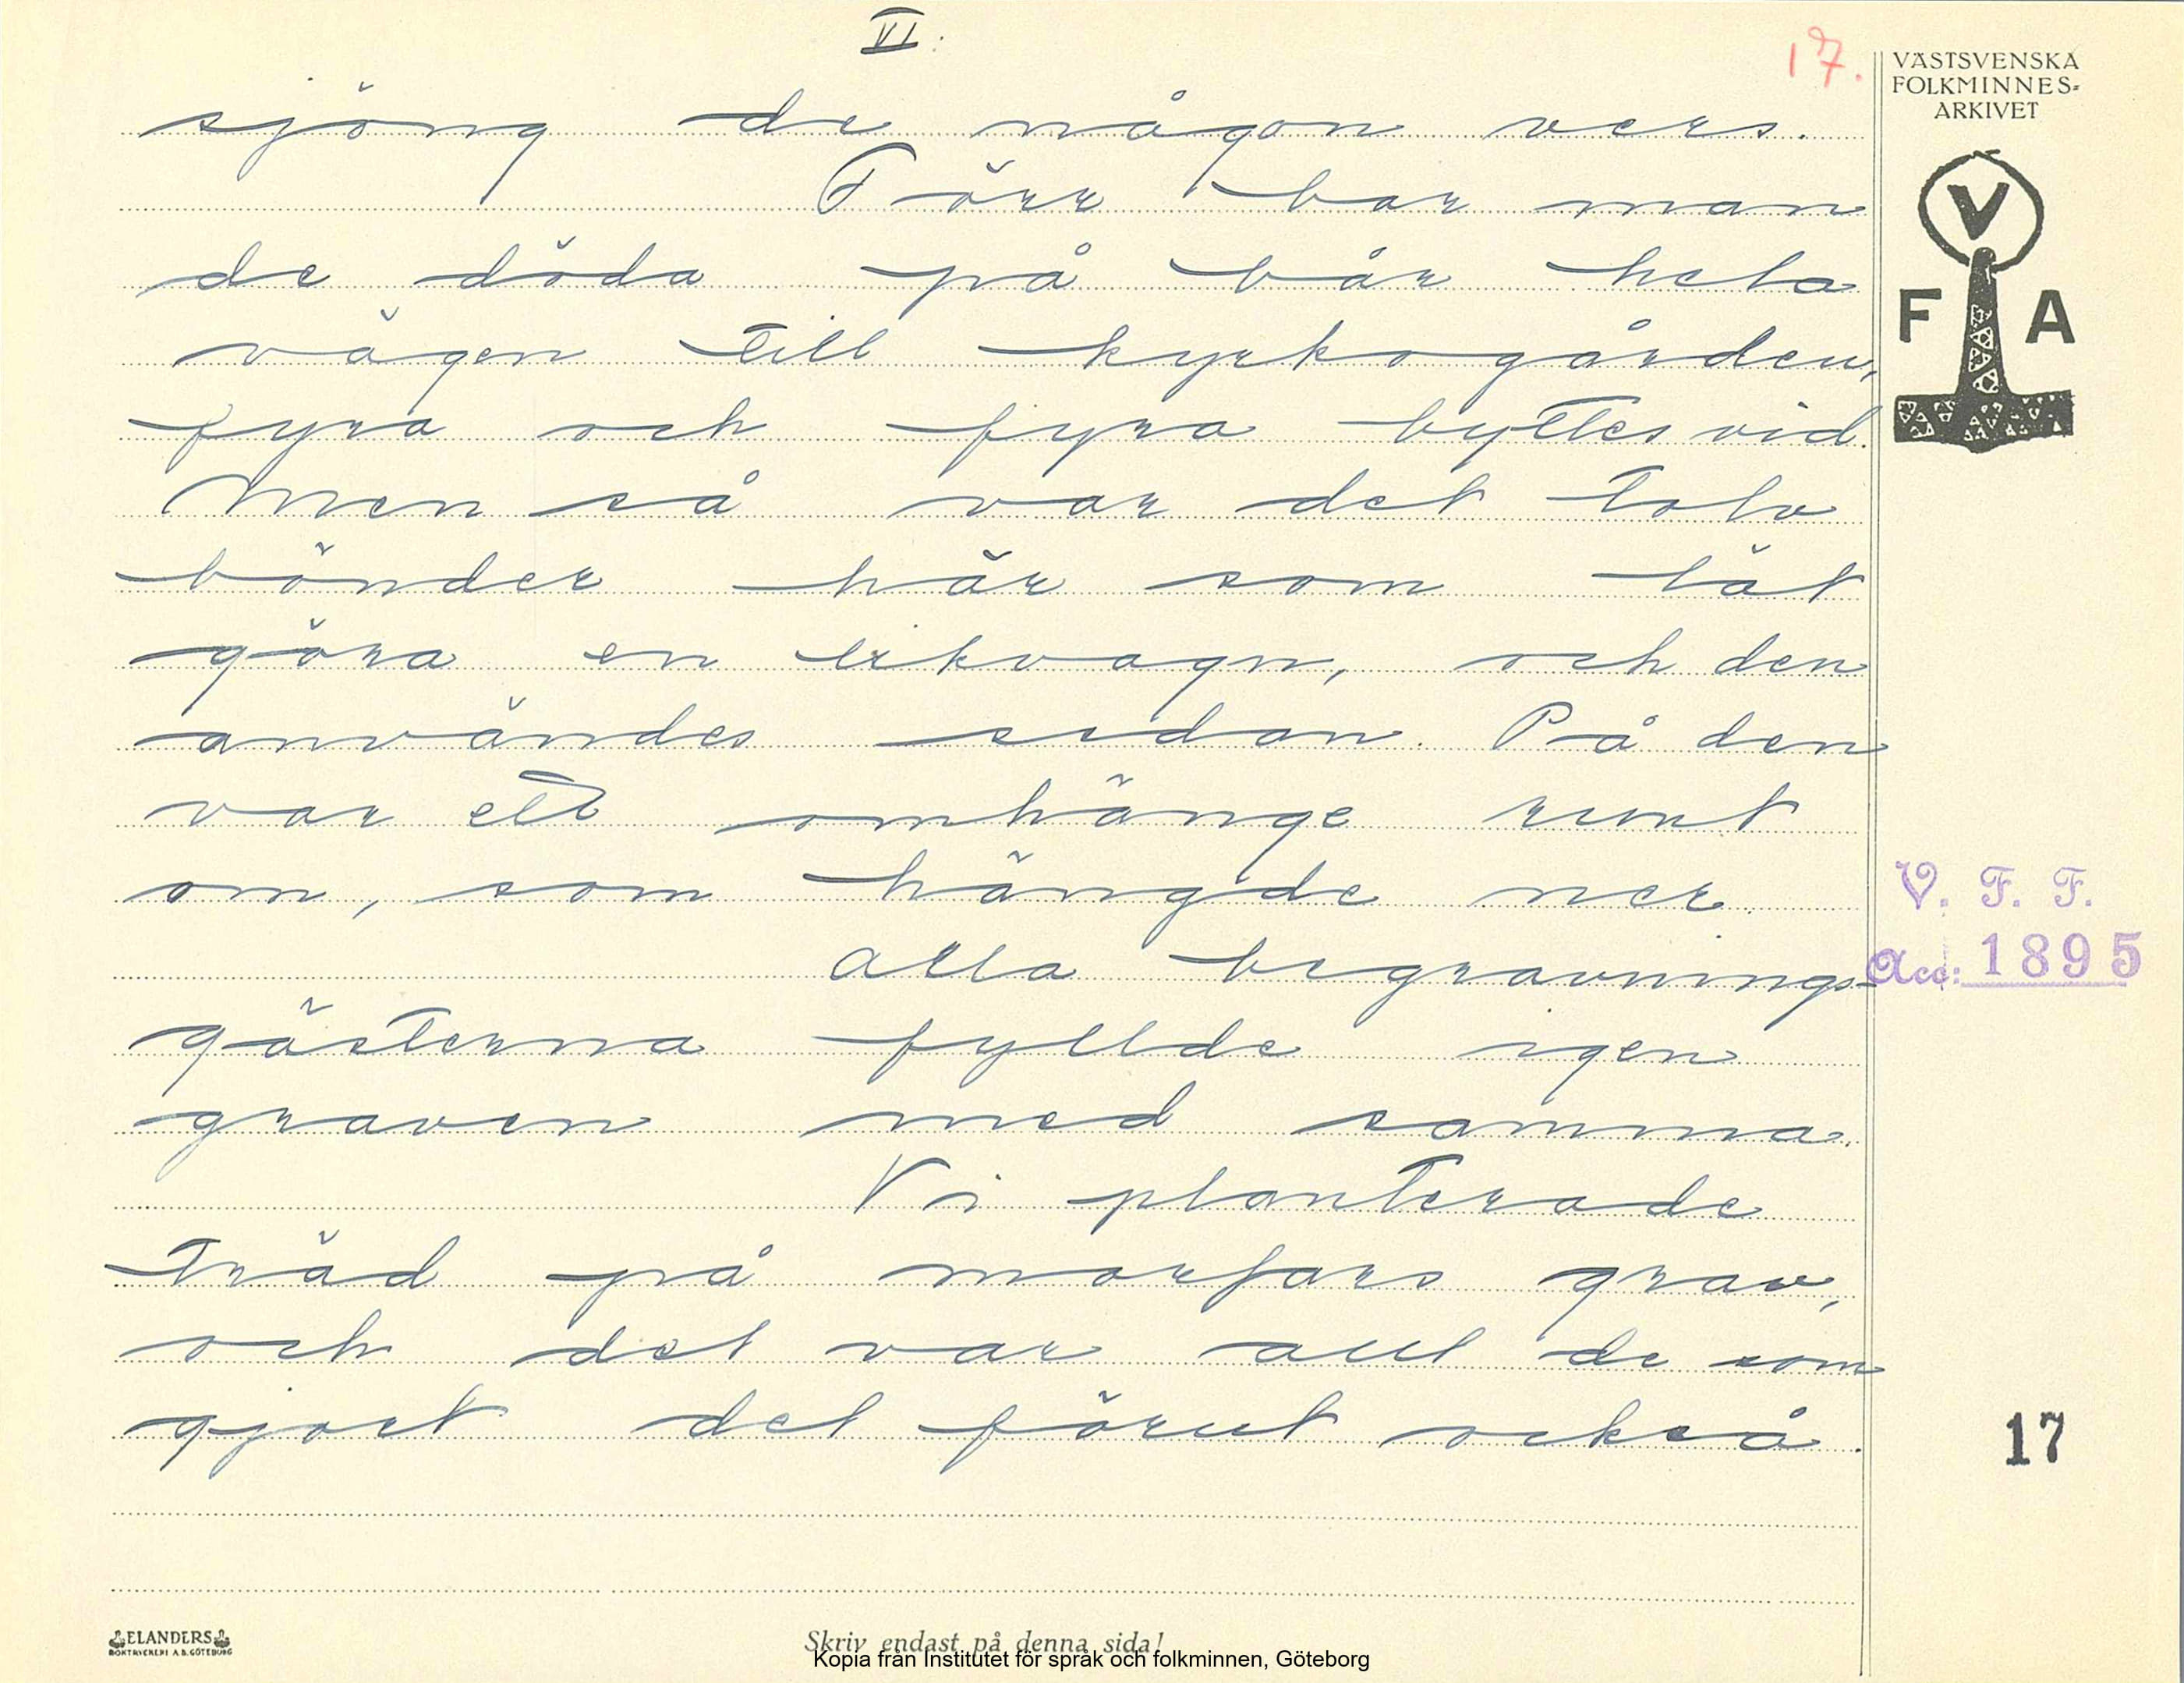 VI.
17.
VÄSTSVENSKA
FOLKMINNES-
ARKIVET
V
F A
sjöng de någon vers.
Förr bar man
de döda på bår hela
vägen till kyrkogården,
fyra och fyra byttes vid.
Men så var det tolv
bönder här som lät
göra en likvagn, och den
användes sedan. På den
var ett omhänge runt
om, som hängde ner.
Alla begravnings-
gästerna fyllde igen
graven med samma.
Vi planterade
träd på morfars grav,
och det var allt de som
gjort det förut också.
V. F. F.
Acc: 1895
17
ELANDERS
BOKTRYCKERI A.B. GÖTEBORG
Skriv endast på denna sida!
Kopia från Institutet för språk och folkminnen, Göteborg